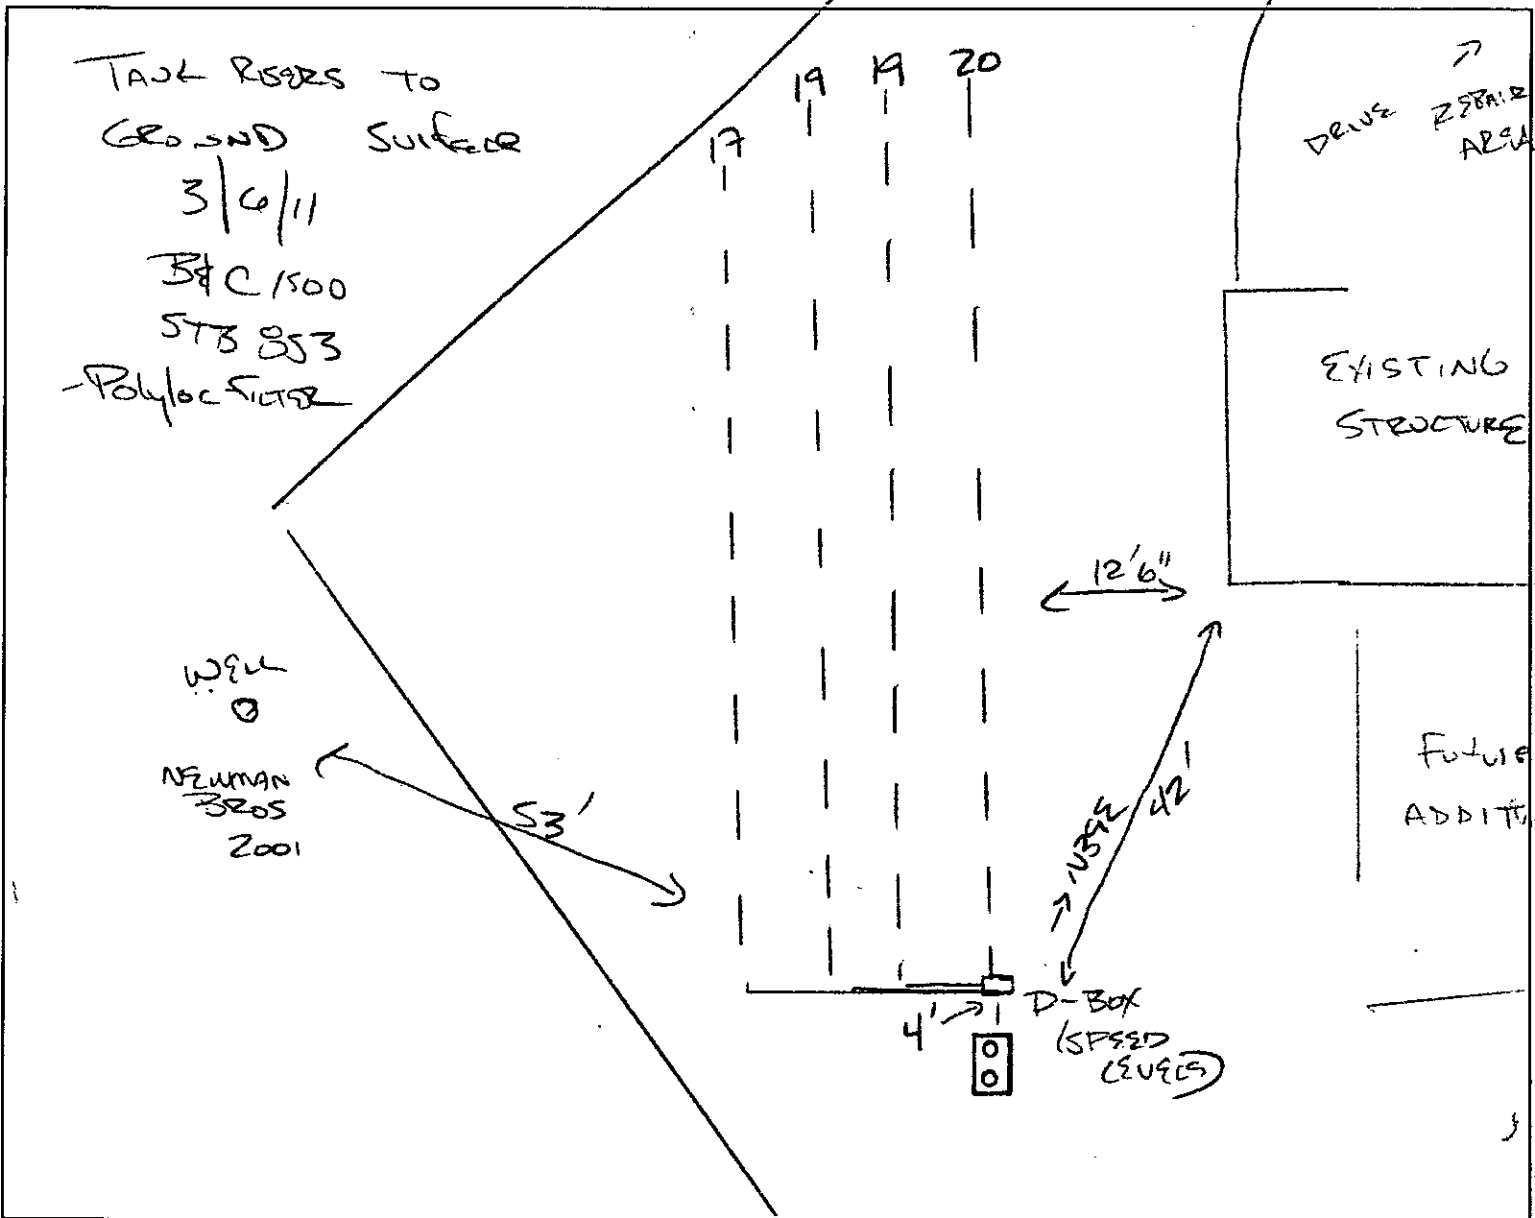 TANK RISERS TO
GROUND SURFACE
3/6/11
B&C 1500
STB 853
-Polyloc FILTER
17
19
19
20
DRIVE
REPAIR
AREA
EXISTING
STRUCTURE
12'6"
WELL
NEWMAN
BROS
2001
53'
N39E
42'
FUTURE
ADDIT
4'
D-BOX
(SPEED
LEVELS)